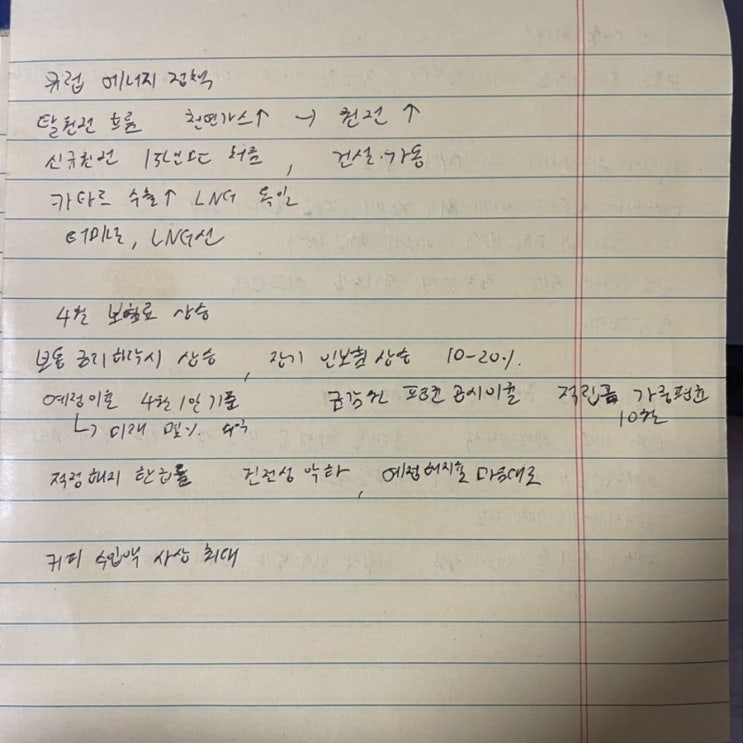 유럽 에너지 정책
탈원전 흐름 천연가스↑ → 원전 ↑
신규원전 15년만에 처음, 건설·가동
카타르 수출↑ LNG 독일
터미널, LNG선
4월 보험료 상승
보통 금리하락시 상승, 장기 인보험 상승 10-20%.
예정이율 4월 1일 기준 금감원 표준 공시이율 적립금 가중평균
↳ 미래 몇% 수익 10월
적정해지 환급률 건전성 악화, 예정해지율 마음대로
커피 수입액 사상 최대